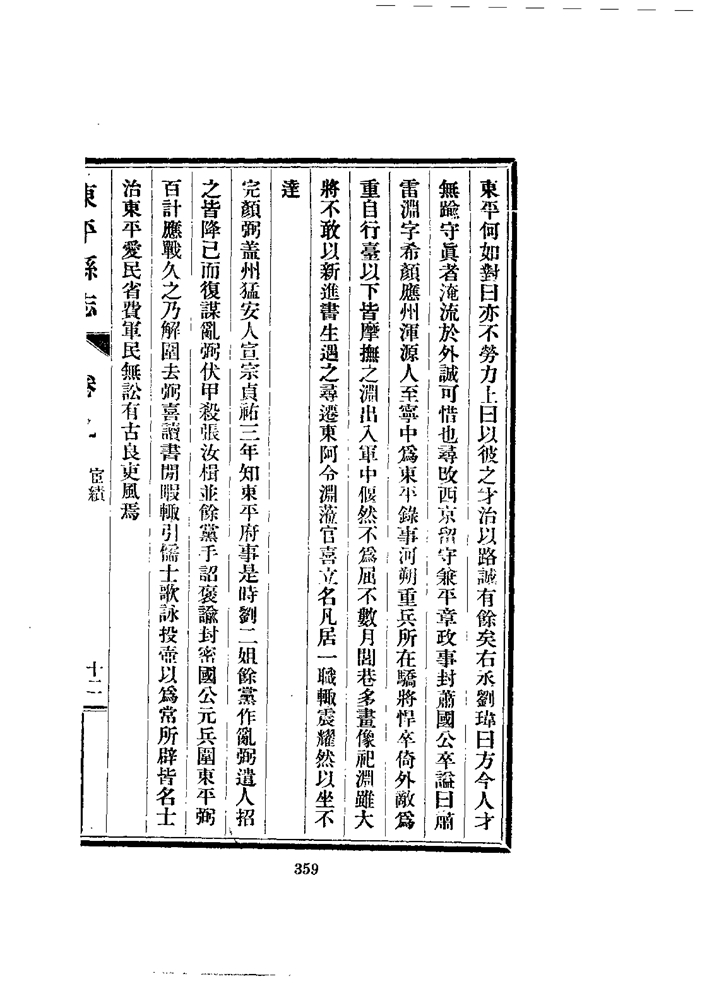 東平何如對曰亦不勞力上曰以彼之才治以路誠有餘矣右丞劉瑋曰方今人才
無踰守眞者淹流於外誠可惜也尋改西京留守兼平章政事封蕭國公卒謚曰肅
雷淵字希顏應州渾源人至寧中爲東平錄事河朔重兵所在驕將悍卒倚外敵爲
重自行臺以下皆摩撫之淵出入軍中偃然不爲屈不數月閭巷多畫像祀淵雖大
將不敢以新進書生遇之尋遷東阿令淵蒞官喜立名凡居一職輙震耀然以坐不
達
完顏弼盖州猛安人宣宗貞祐三年知東平府事是時劉二姐餘黨作亂弼遣人招
之皆降已而復謀亂弼伏甲殺張汝楫並餘黨手詔褒諭封密國公元兵圍東平弼
百計應戰久之乃解圍去弼喜讀書閒暇輙引儒士歌詠投壺以爲常所辟皆名士
治東平愛民省費軍民無訟有古良吏風焉
東平縣志
卷九
宦績
十二
359